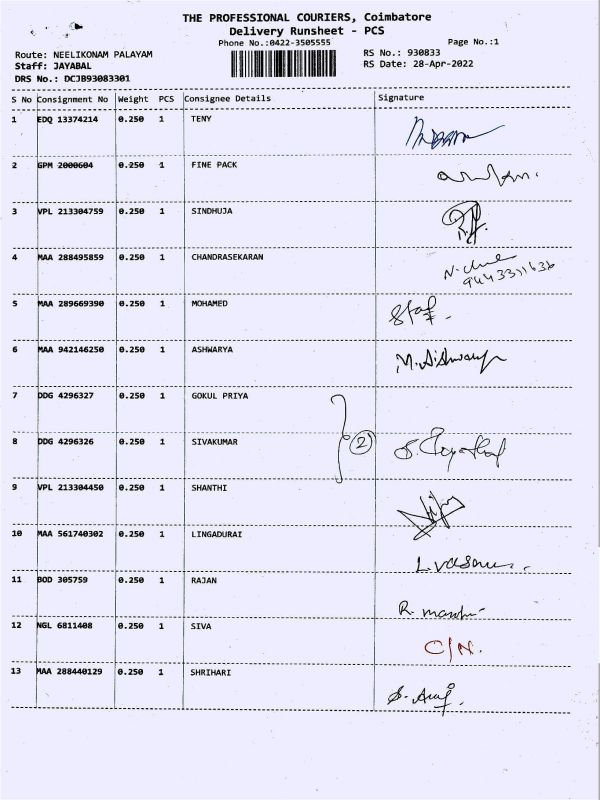 THE PROFESSIONAL COURIERS, Coimbatore
Delivery Runsheet - PCS
Phone No.:0422-3505555
Page No.:1
Route: NEELIKONAM PALAYAM
RS No.: 930833
Staff: JAYABAL
RS Date: 28-Apr-2022
DRS No.: DCJB93083301
S No Consignment No Weight PCS Consignee Details Signature
1 EDQ 13374214 0.250 1 TENY
2 GPM 2000604 0.250 1 FINE PACK
3 VPL 213304759 0.250 1 SINDHUJA
4 MAA 288495859 0.250 1 CHANDRASEKARAN
5 MAA 289669390 0.250 1 MOHAMED
Staf
6 MAA 942146250 0.250 1 ASHWARYA
M. Aishwarya
7 DDG 4296327 0.250 1 GOKUL PRIYA
2
8 DDG 4296326 0.250 1 SIVAKUMAR
9 VPL 213304450 0.250 1 SHANTHI
10 MAA 561740302 0.250 1 LINGADURAI
11 BOD 305759 0.250 1 RAJAN
12 NGL 6811408 0.250 1 SIVA
C/N.
13 MAA 288440129 0.250 1 SHRIHARI